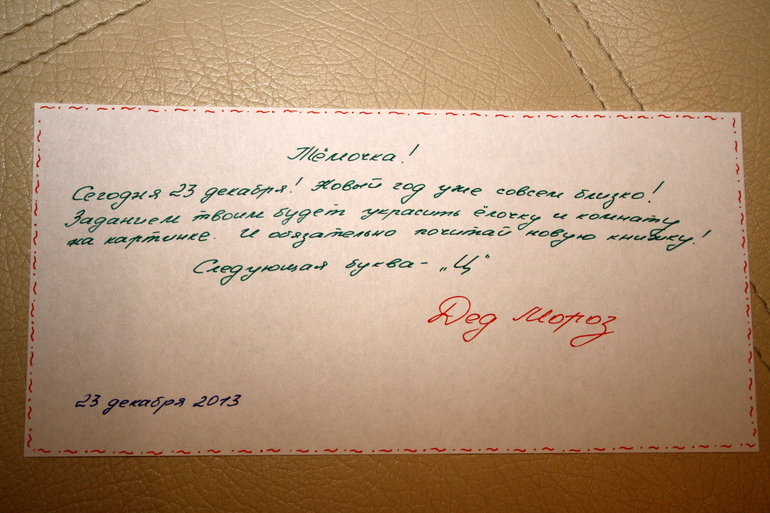 Тёмочка!
Сегодня 23 декабря! Новый год уже совсем близко!
Заданием твоим будет украсить ёлочку и комнату
на картинке. И обязательно почитай новую книжку!
Следующая буква - „Ц"
Дед Мороз
23 декабря 2013